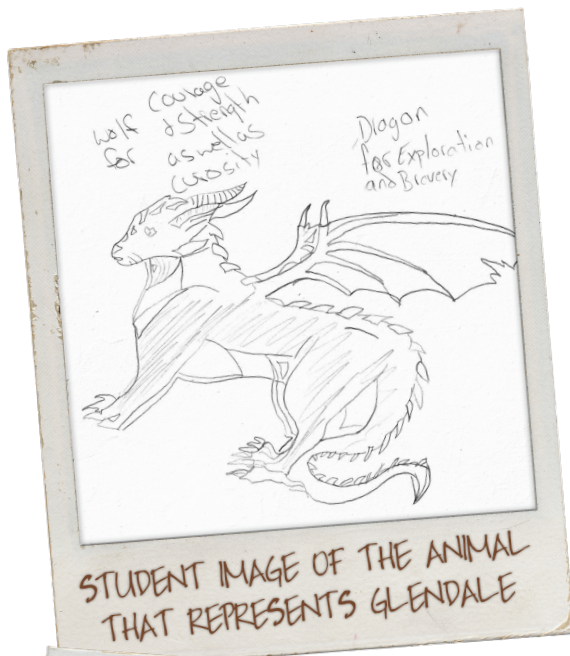 wolf Courage
for & Strength
as well as
curosity
Dragon
for Exploration
and Bravery
STUDENT IMAGE OF THE ANIMAL
THAT REPRESENTS GLENDALE